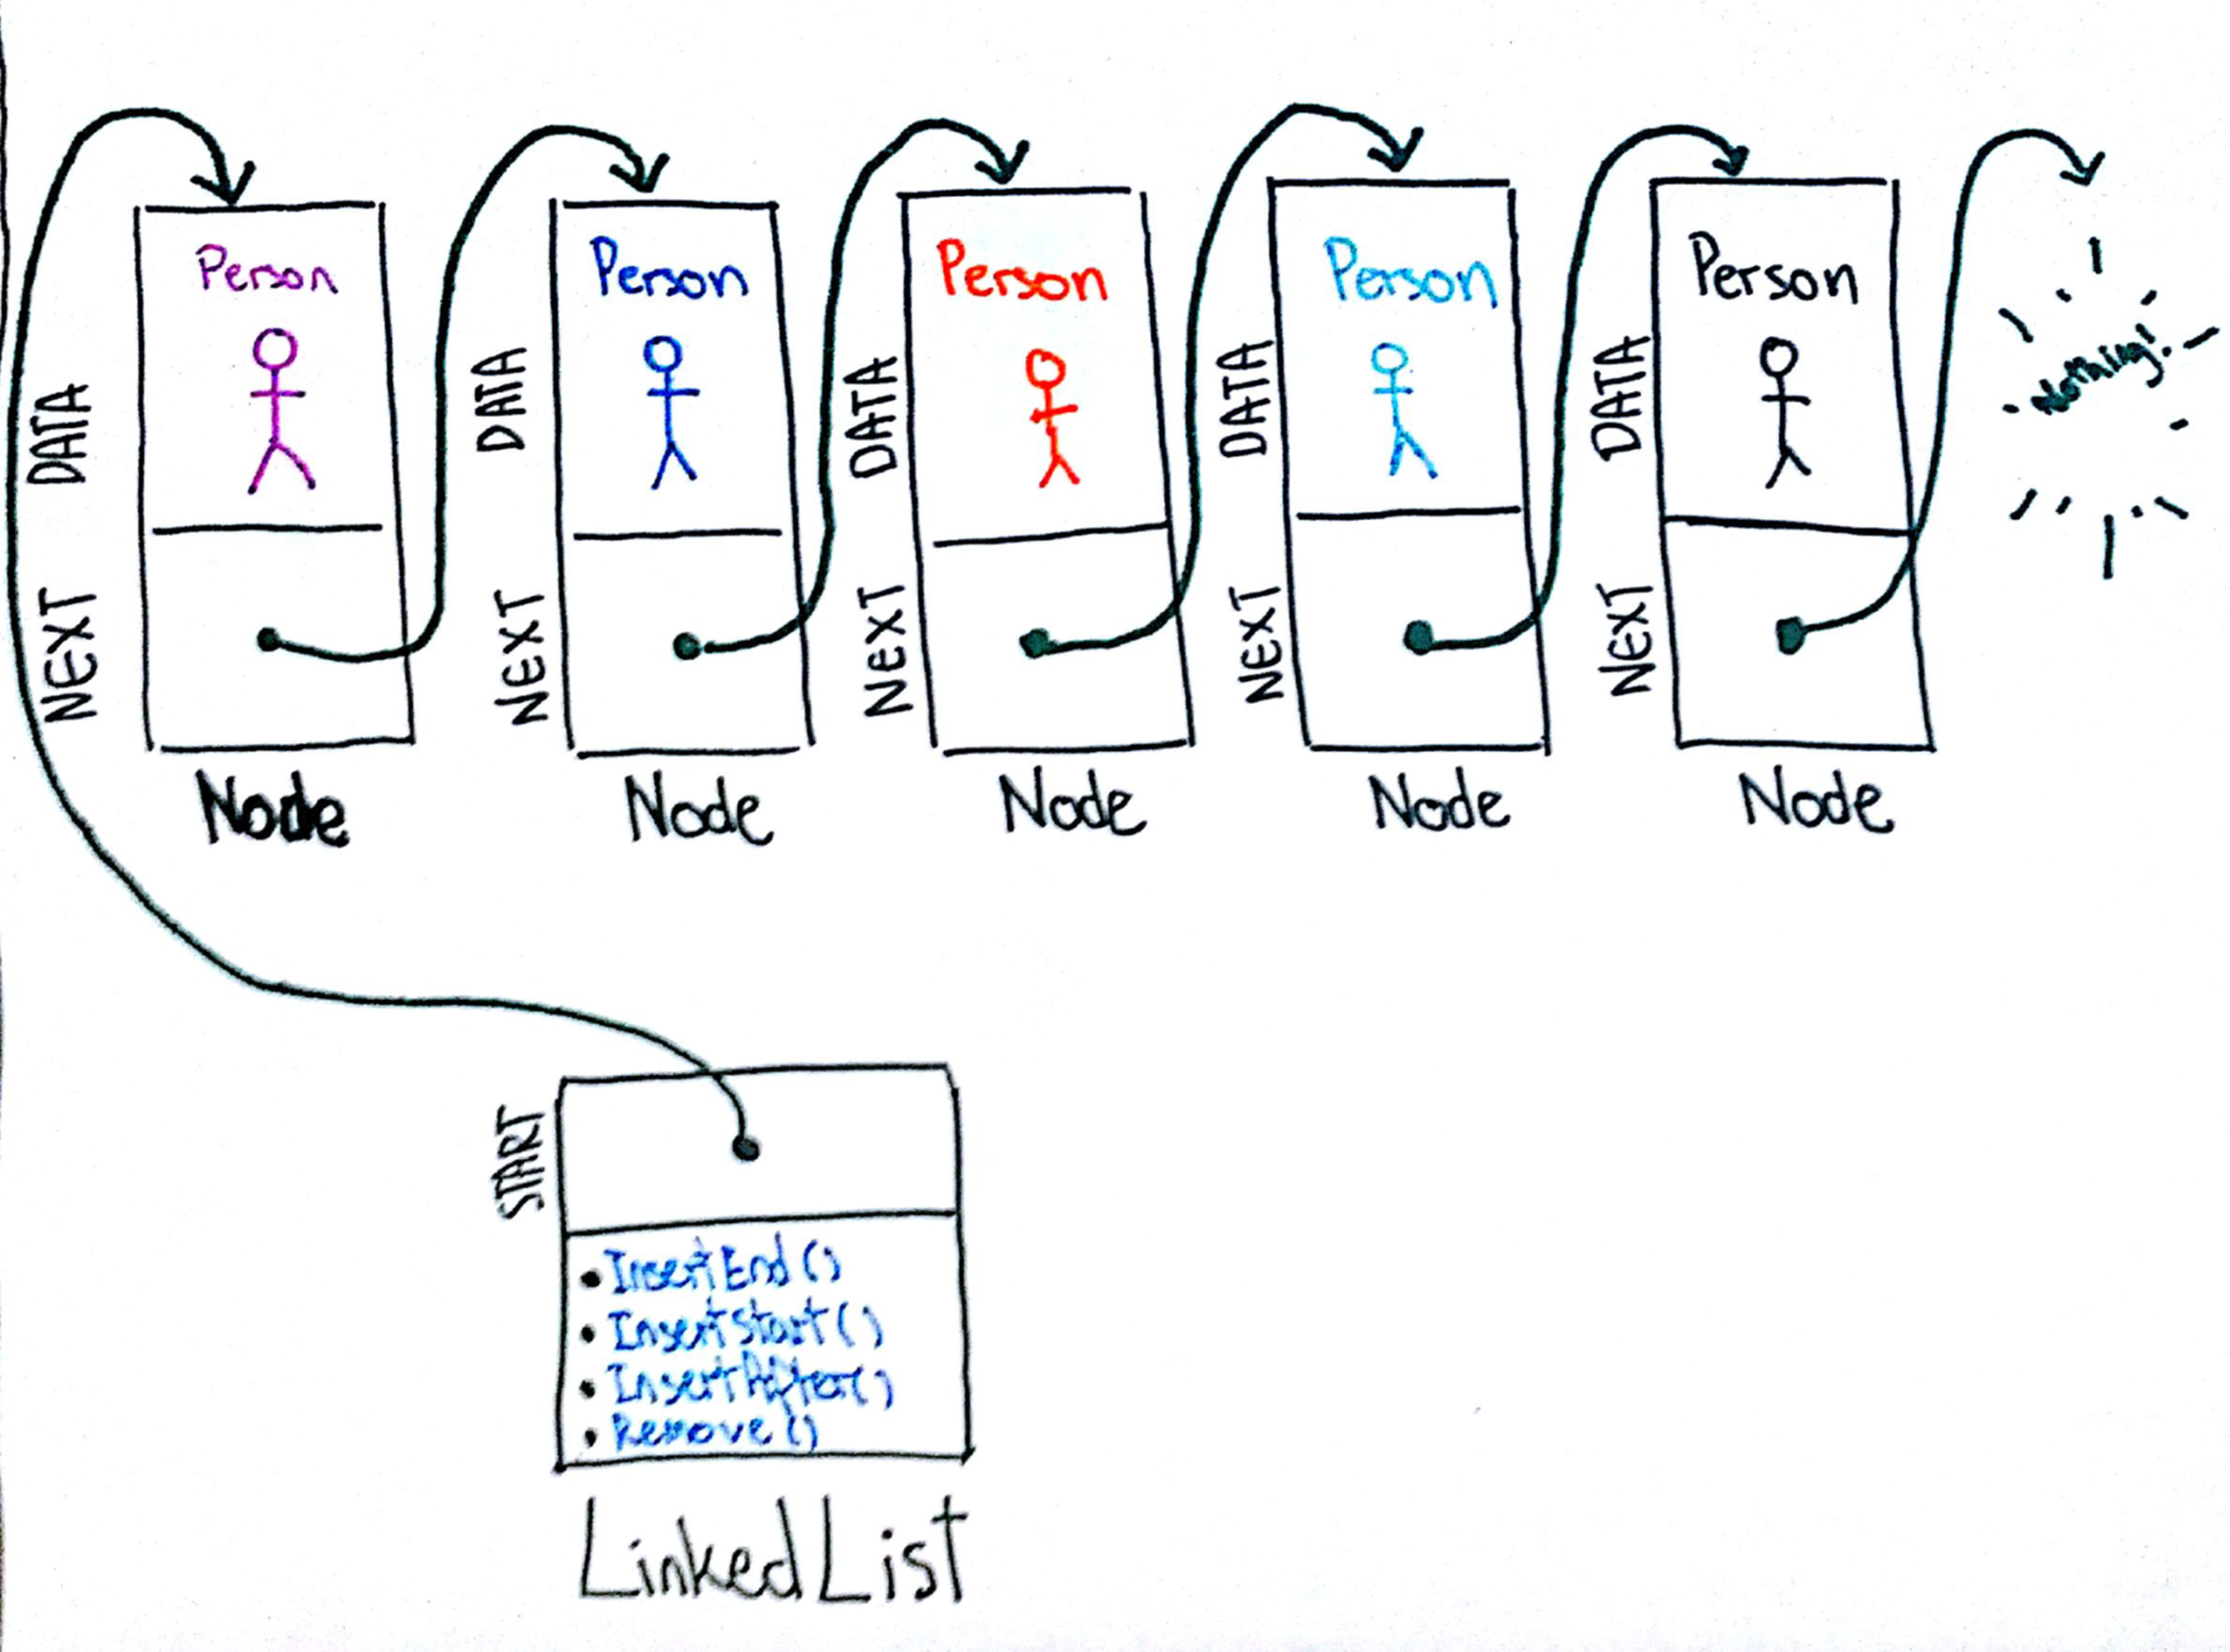 Person Person Person Person Person
DATA DATA DATA DATA DATA
Nothing!
NEXT NEXT NEXT NEXT NEXT
Node Node Node Node Node
START
• InsertEnd()
• InsertStart()
• InsertAfter()
• Remove()
LinkedList